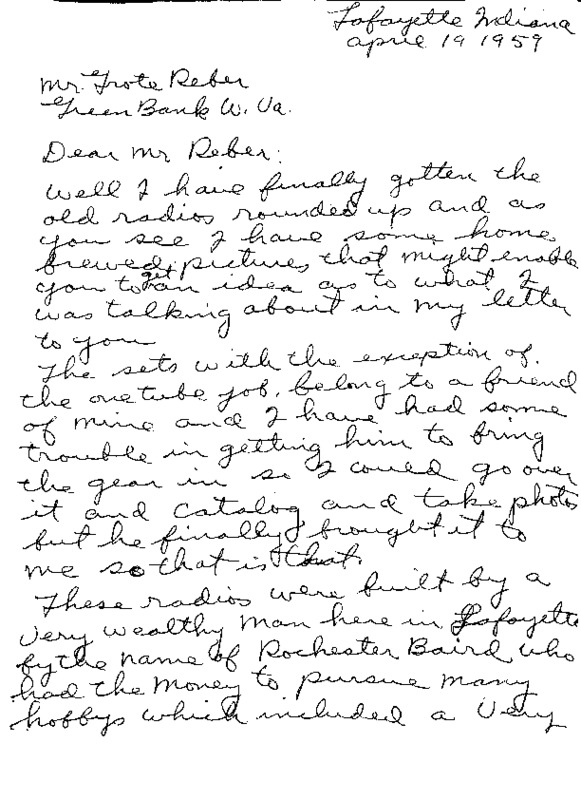 Lafayette Indiana
april 19 1959
Mr. Grote Reber
Green Bank W. Va.
Dear Mr Reber:
Well I have finally gotten the
old radios rounded up and as
you see I have some home
brewed pictures that might enable
you to get an idea as to what I
was talking about in my letter
to you
The sets with the exception of
the one tube job, belong to a friend
of mine and I have had some
trouble in getting him to bring
the gear in so I could go over
it and catalog and take photos
but he finally brought it to
me so that is that.
These radios were built by a
very wealthy man here in Lafayette
by the name of Rochester Baird who
had the money to pursue many
hobbys which included a very